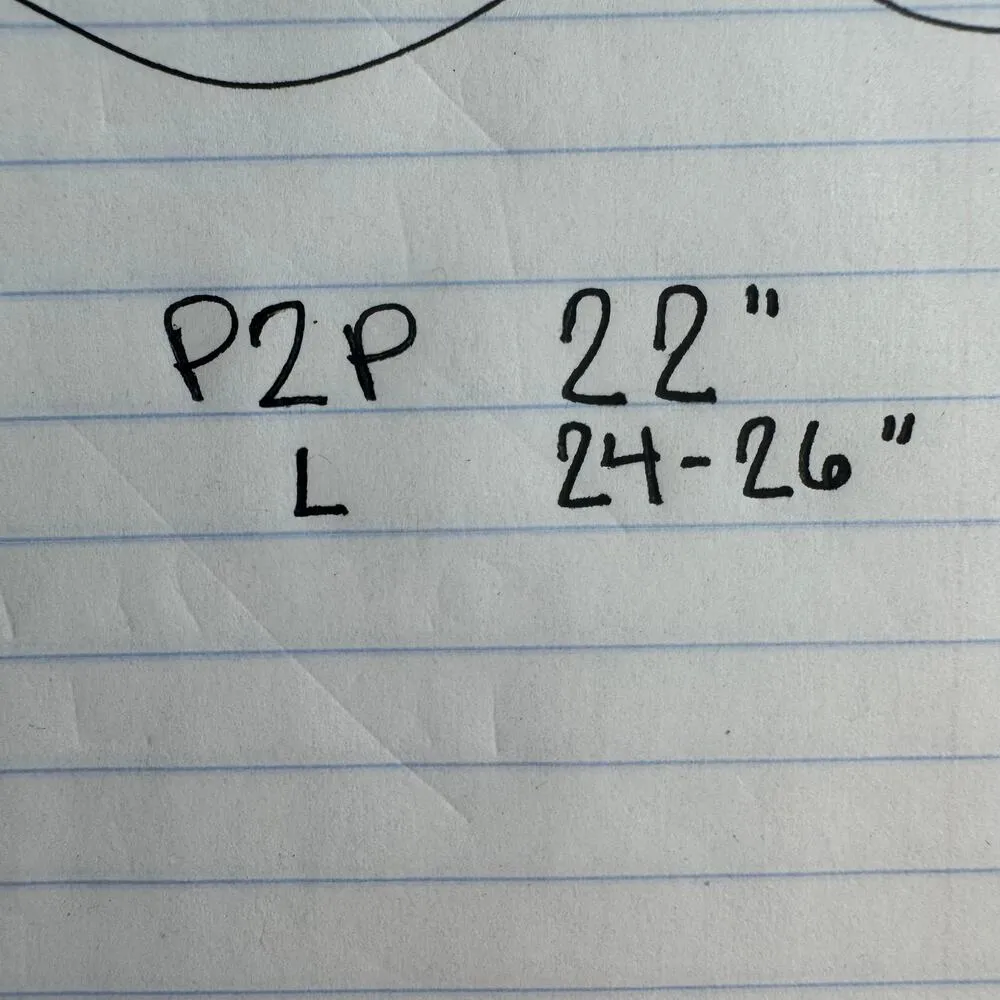 P2P 22"
L 24-26"